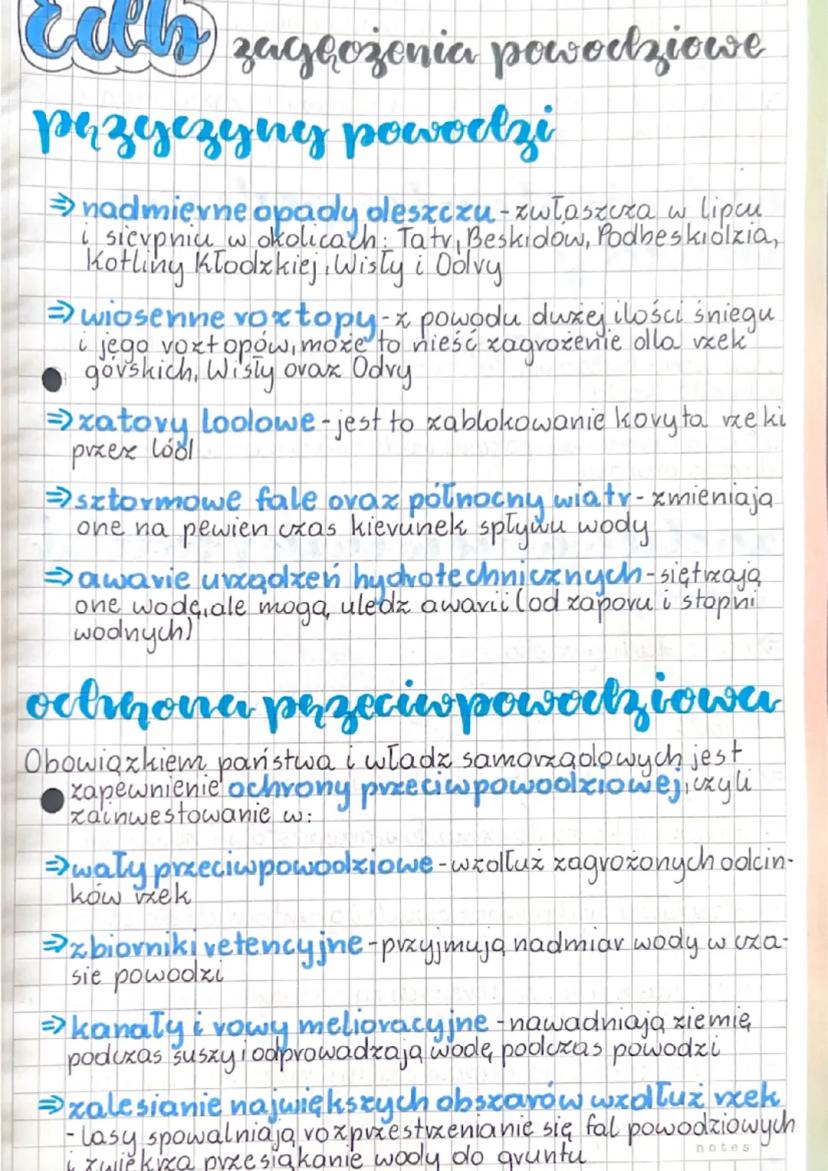 Edb zagrożenia powodziowe
przyczyny powodzi
⇒ nadmierne opady deszczu - zwłaszcza w lipcu
i sierpniu w okolicach: Tatr, Beskidów, Podbeskidzia,
Kotliny Kłodzkiej, Wisły i Odry
⇒ wiosenne roztopy - z powodu dużej ilości śniegu
i jego roztopów, może to nieść zagrożenie dla rzek
górskich, Wisły oraz Odry
⇒ zatory lodowe - jest to zablokowanie koryta rzeki
przez lód
⇒ sztormowe fale oraz północny wiatr - zmieniają
one na pewien czas kierunek spływu wody
⇒ awarie urządzeń hydrotechnicznych - siętrzają
one wodę, ale mogą uledz awarii (od zaporu i stopni
wodnych)
ochrona przeciwpowodziowa
Obowiązkiem państwa i władz samorządowych jest
zapewnienie ochrony przeciwpowodziowej, czyli
zainwestowanie w:
⇒ wały przeciwpowodziowe - wzdłuż zagrożonych odcin-
ków rzek
⇒ zbiorniki retencyjne - przyjmują nadmiar wody w cza-
sie powodzi
⇒ kanały i rowy melioracyjne - nawadniają ziemię
podczas suszy i odprowadzają wodę podczas powodzi
⇒ zalesianie największych obszarów wzdłuż rzek
- lasy spowalniają rozprzestrzenianie się fal powodziowych
notes
i zwiększa przesiąkanie wody do gruntu